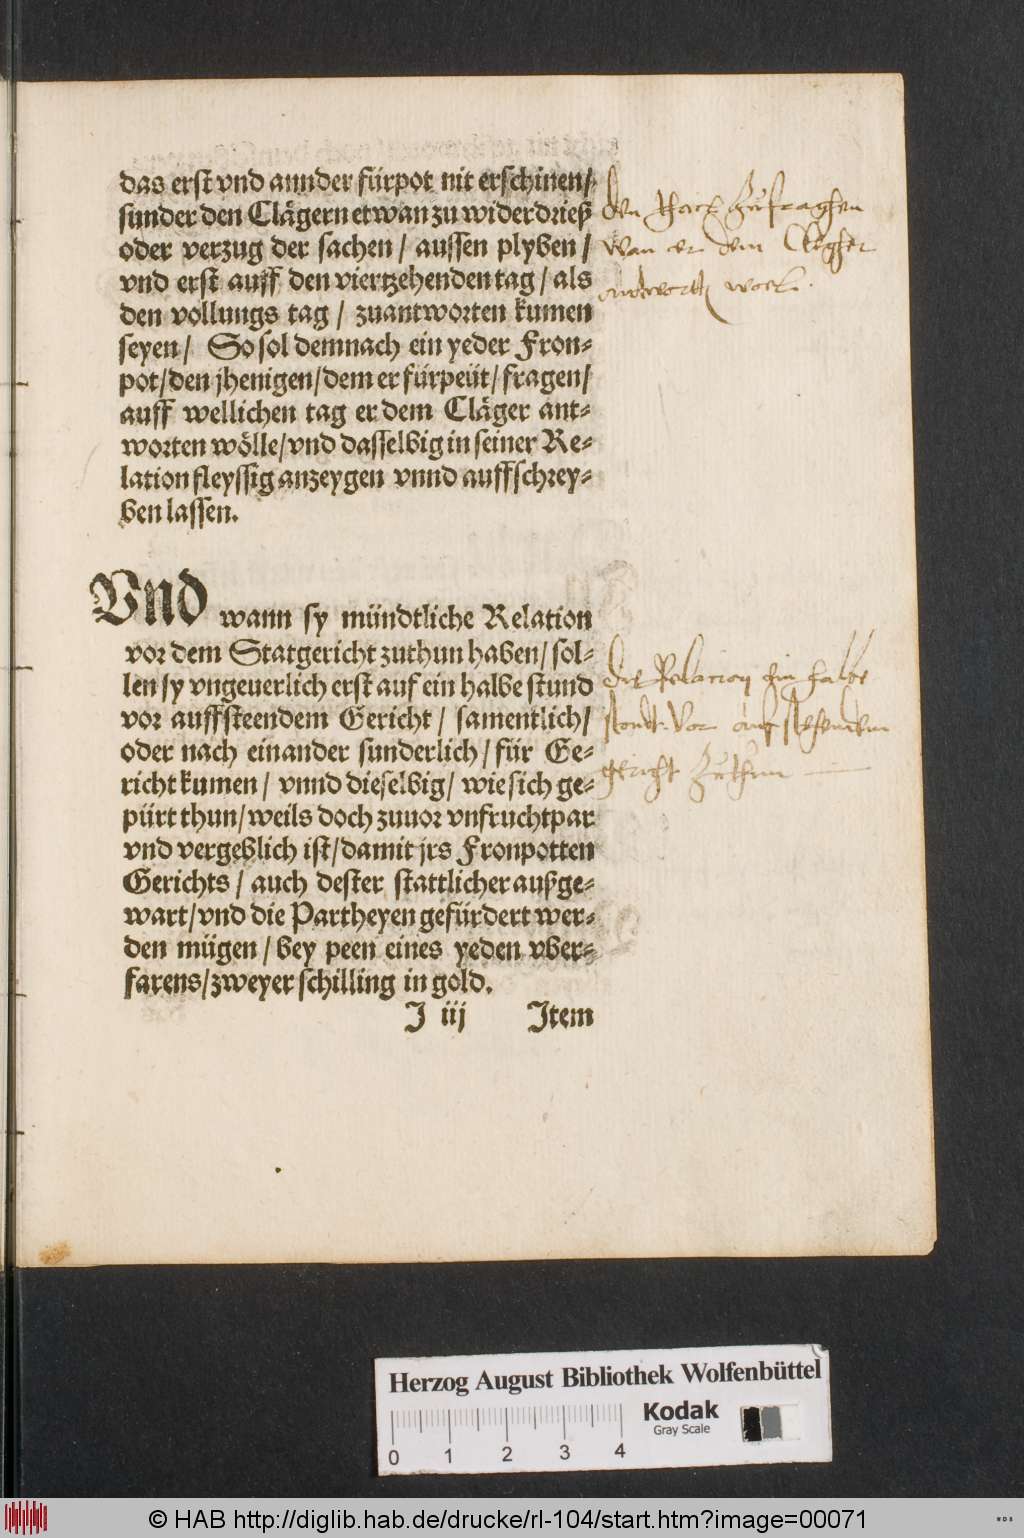 das erst vnd annder fürpot nit erschinen/
sunder den Clägern etwan zu widerdrieß
oder verzug der sachen / aussen plyben /
vnd erst auff den viertzehenden tag / als
den vollungs tag / zuantworten kumen
seyen / So sol demnach ein yeder Fron-
pot/den jhenigen/dem er fürpeüt/fragen/
auff wellichen tag er dem Cläger ant-
worten wölle/vnd dasselbig in seiner Re-
lation fleyssig anzeygen vnnd auffschrey-
ben lassen.
den zufraghen
wan er dem Clegher
Vnd wann sy mündtliche Relation
vor dem Statgericht zuthun haben/ sol-
len sy vngeuerlich erst auf ein halbe stund
vor auffsteendem Gericht / samentlich/
oder nach einander sunderlich/ für Ge-
richt kumen / vnnd dieselbig/ wie sich ge-
pürt thun/weils doch zuuor vnfruchtpar
vnd vergeblich ist/damit jrs Fronpotten
Gerichts / auch dester stattlicher außge-
wart/vnd die Partheyen gefürdert wer-
den mügen / bey peen eines yeden vber-
farens/zweyer schilling in gold.
die Relacion ein halbe
stondt vor
gericht zuthun
J iij Item
Herzog August Bibliothek Wolfenbüttel
Kodak
Gray Scale
0 1 2 3 4
© HAB http://diglib.hab.de/drucke/rl-104/start.htm?image=00071